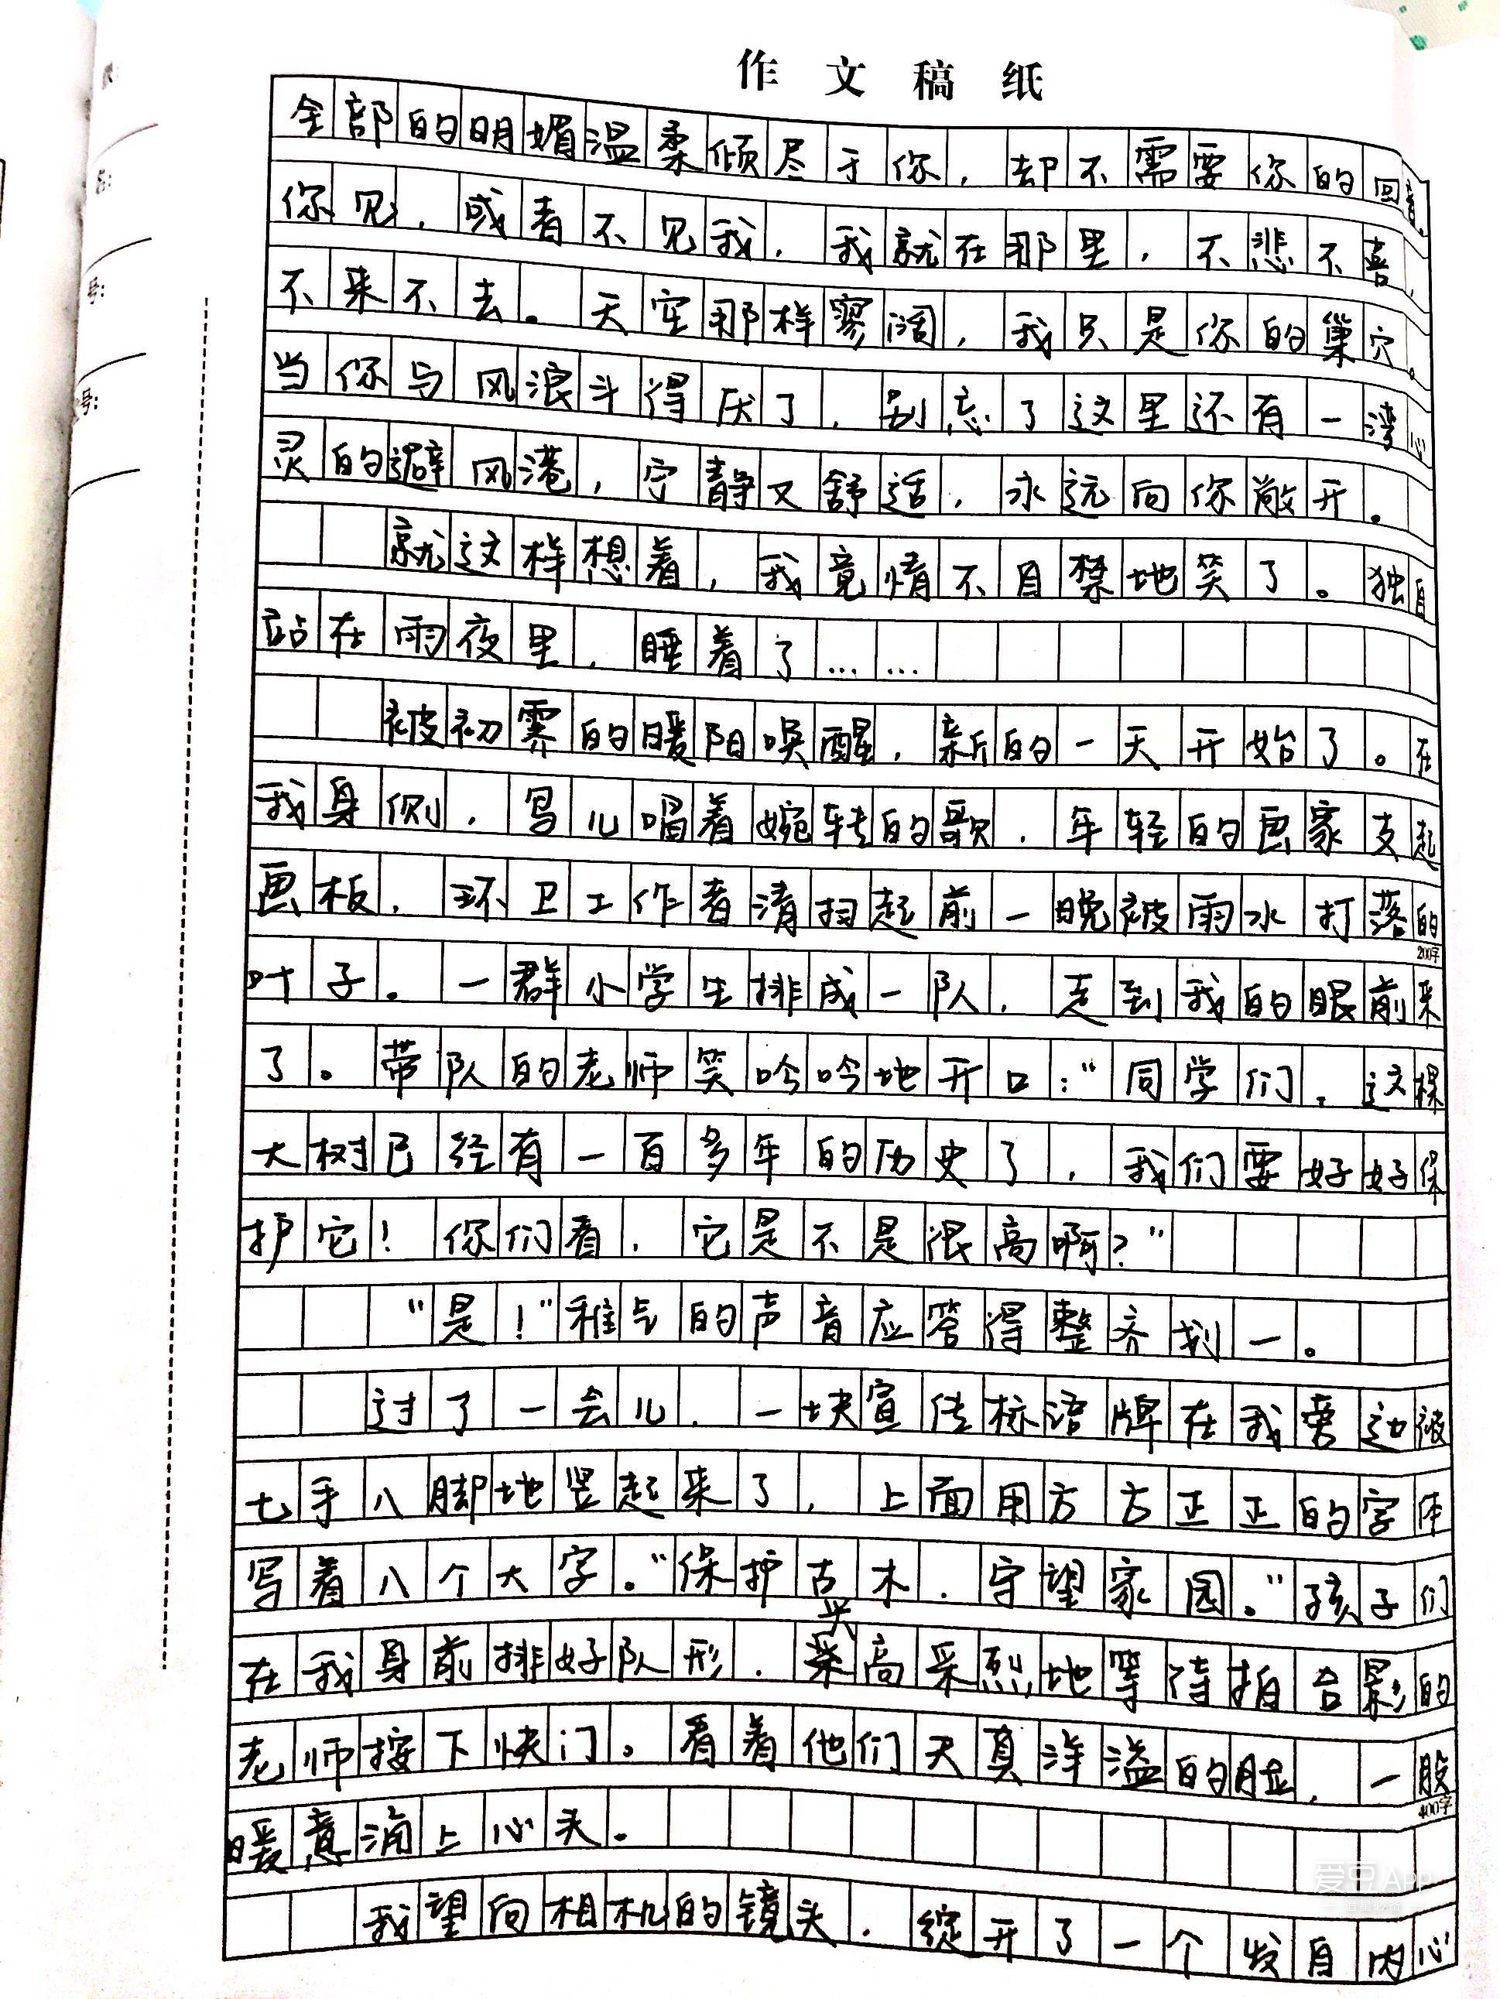 作文稿纸
全部的明媚温柔倾尽于你，却不需要你的回首。
你见，或者不见我，我就在那里，不悲不喜，
不来不去。天空那样寥阔，我只是你的巢穴。
当你与风浪斗得厌了，别忘了这里还有一湾心
灵的避风港，宁静又舒适，永远向你敞开。
就这样想着，我竟情不自禁地笑了。独自
站在雨夜里，睡着了……
被初霁的暖阳唤醒，新的一天开始了。在
我身侧，鸟儿唱着婉转的歌，年轻的画家支起
画板，环卫工作者清扫起前一晚被雨水打落的
200字
叶子。一群小学生排成一队，走到我的眼前来
了。带队的老师笑吟吟地开口：“同学们，这棵
大树已经有一百多年的历史了，我们要好好保
护它！你们看，它是不是很高啊？”
“是！”稚气的声音应答得整齐划一。
过了一会儿，一块宣传标语牌在我旁边被
七手八脚地竖起来了，上面用方方正正的字体
写着八个大字。“保护古木，守望家园。”孩子们
兴
在我身前排好队形，高采烈地等待拍合影的
老师按下快门。看着他们天真洋溢的脸，一股
400字
暖意涌上心头。
我望向相机的镜头，绽开了一个发自内心
号:
号:
爱豆App